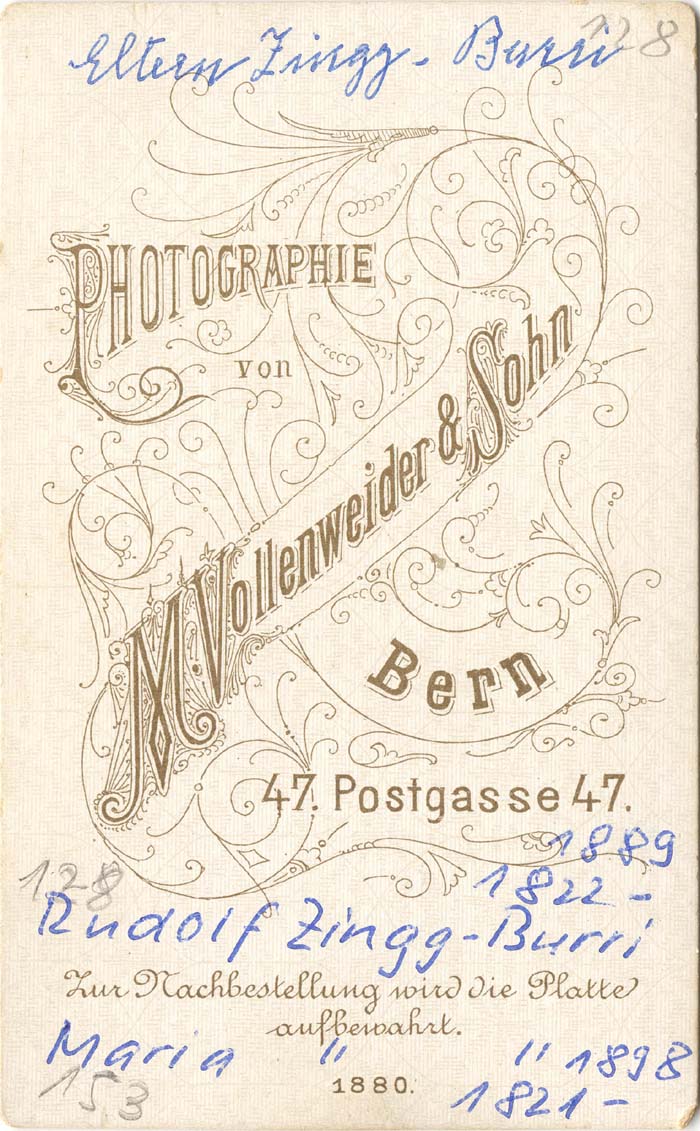 Eltern Zingg-Burri 128
PHOTOGRAPHIE
von
M. Vollenweider & Sohn
Bern
47. Postgasse 47.
1889
128 1822 -
Rudolf Zingg-Burri
Zur Nachbestellung wird die Platte
aufbewahrt.
Maria " " 1898
153 1880. 1821 -